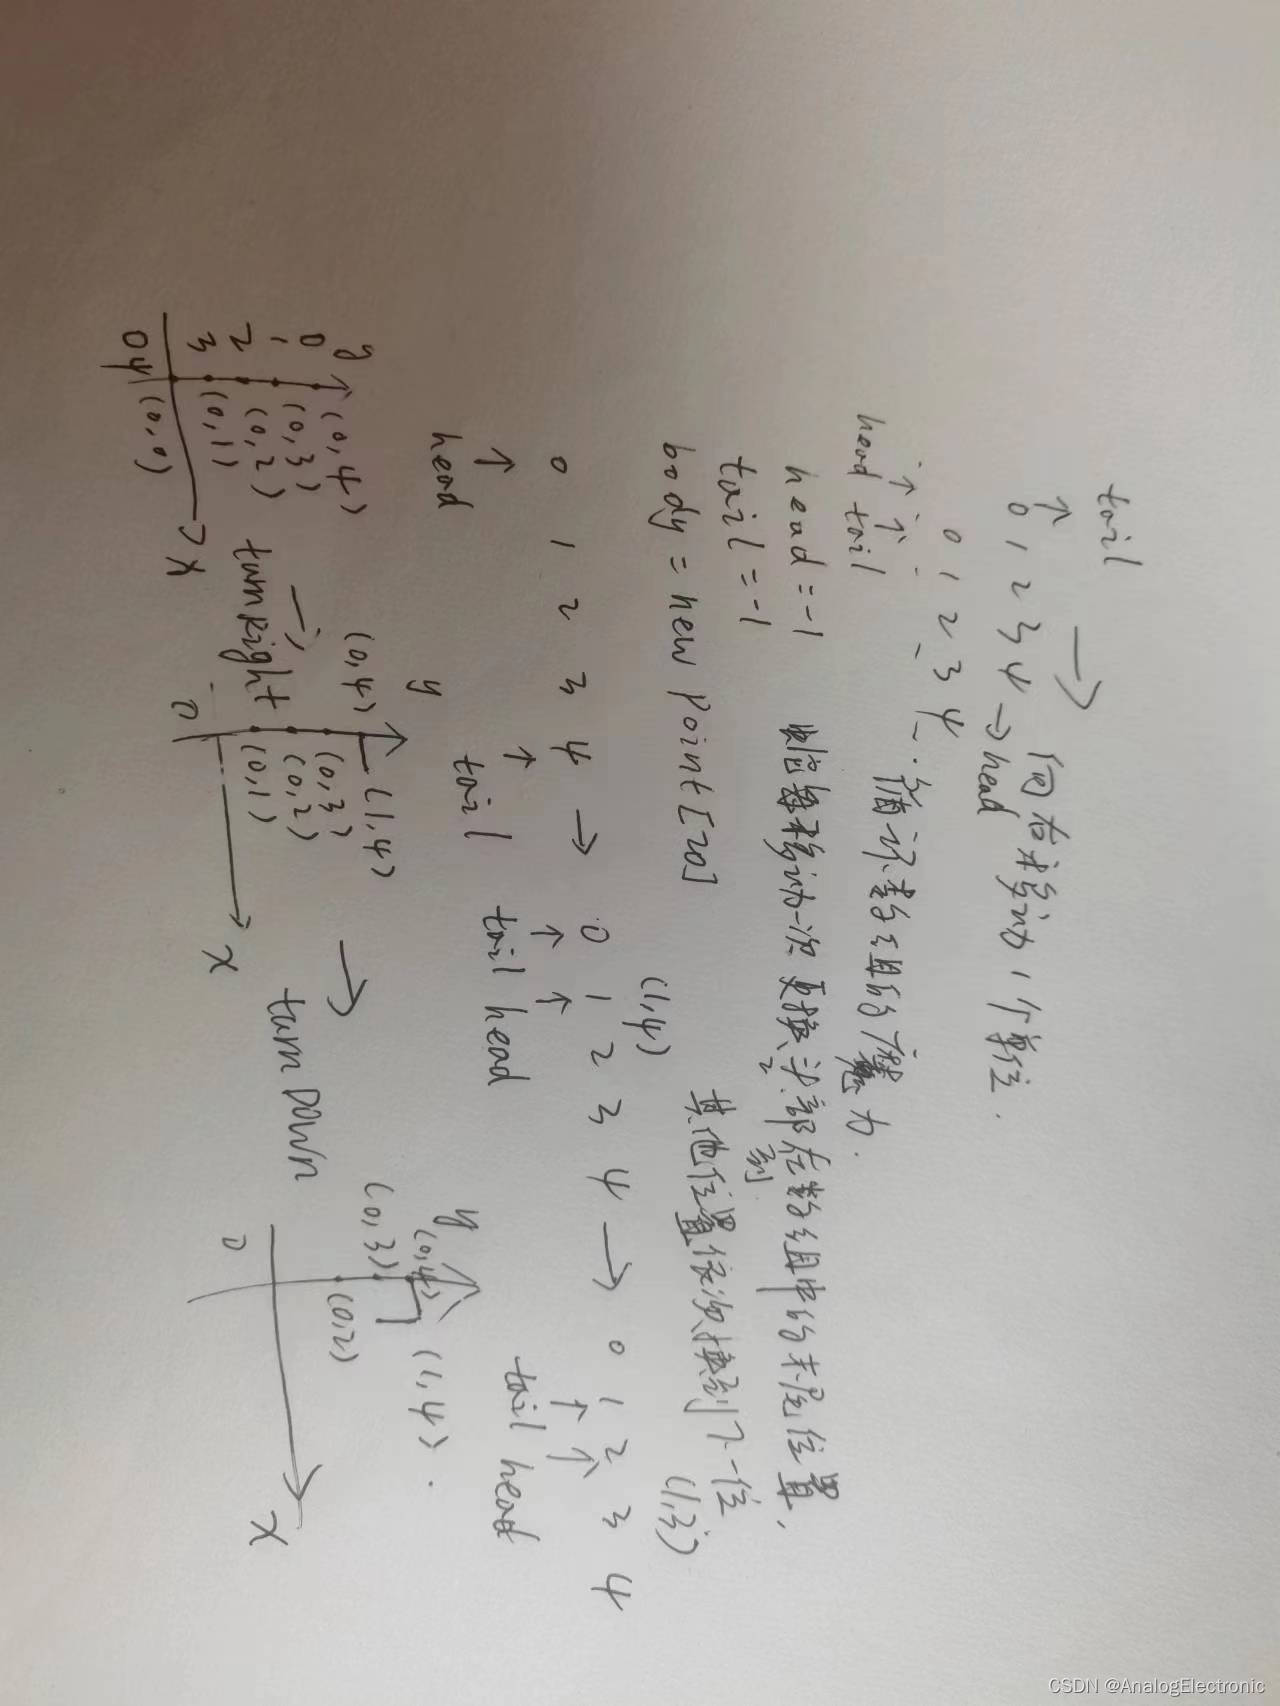 tail
↑
0 1 2 3 4 → head
→
向右移动1个单位.
0 1 2 3 4
↑ ↑
head tail
循环数组的魔力.
head = -1
tail = -1
每移动一次更换头部在数组中的末尾位置,
到
body = new Point[20]
其他位置依次换到下一位
(1,4)
(1,3)
0 1 2 3 4 → 0 1 2 3 4 → 0 1 2 3 4
↑ ↑ ↑ ↑ ↑ ↑
head tail tail head tail head
y y y
0 (0,4) (0,4) (1,4) (0,4) (1,4).
1 (0,3) (0,3) (0,3)
2 (0,2) (0,2) (0,2)
3 (0,1) (0,1)
4 (0,0)
0 0 0
→ turnRight → turnDown
x x x
CSDN @AnalogElectronic